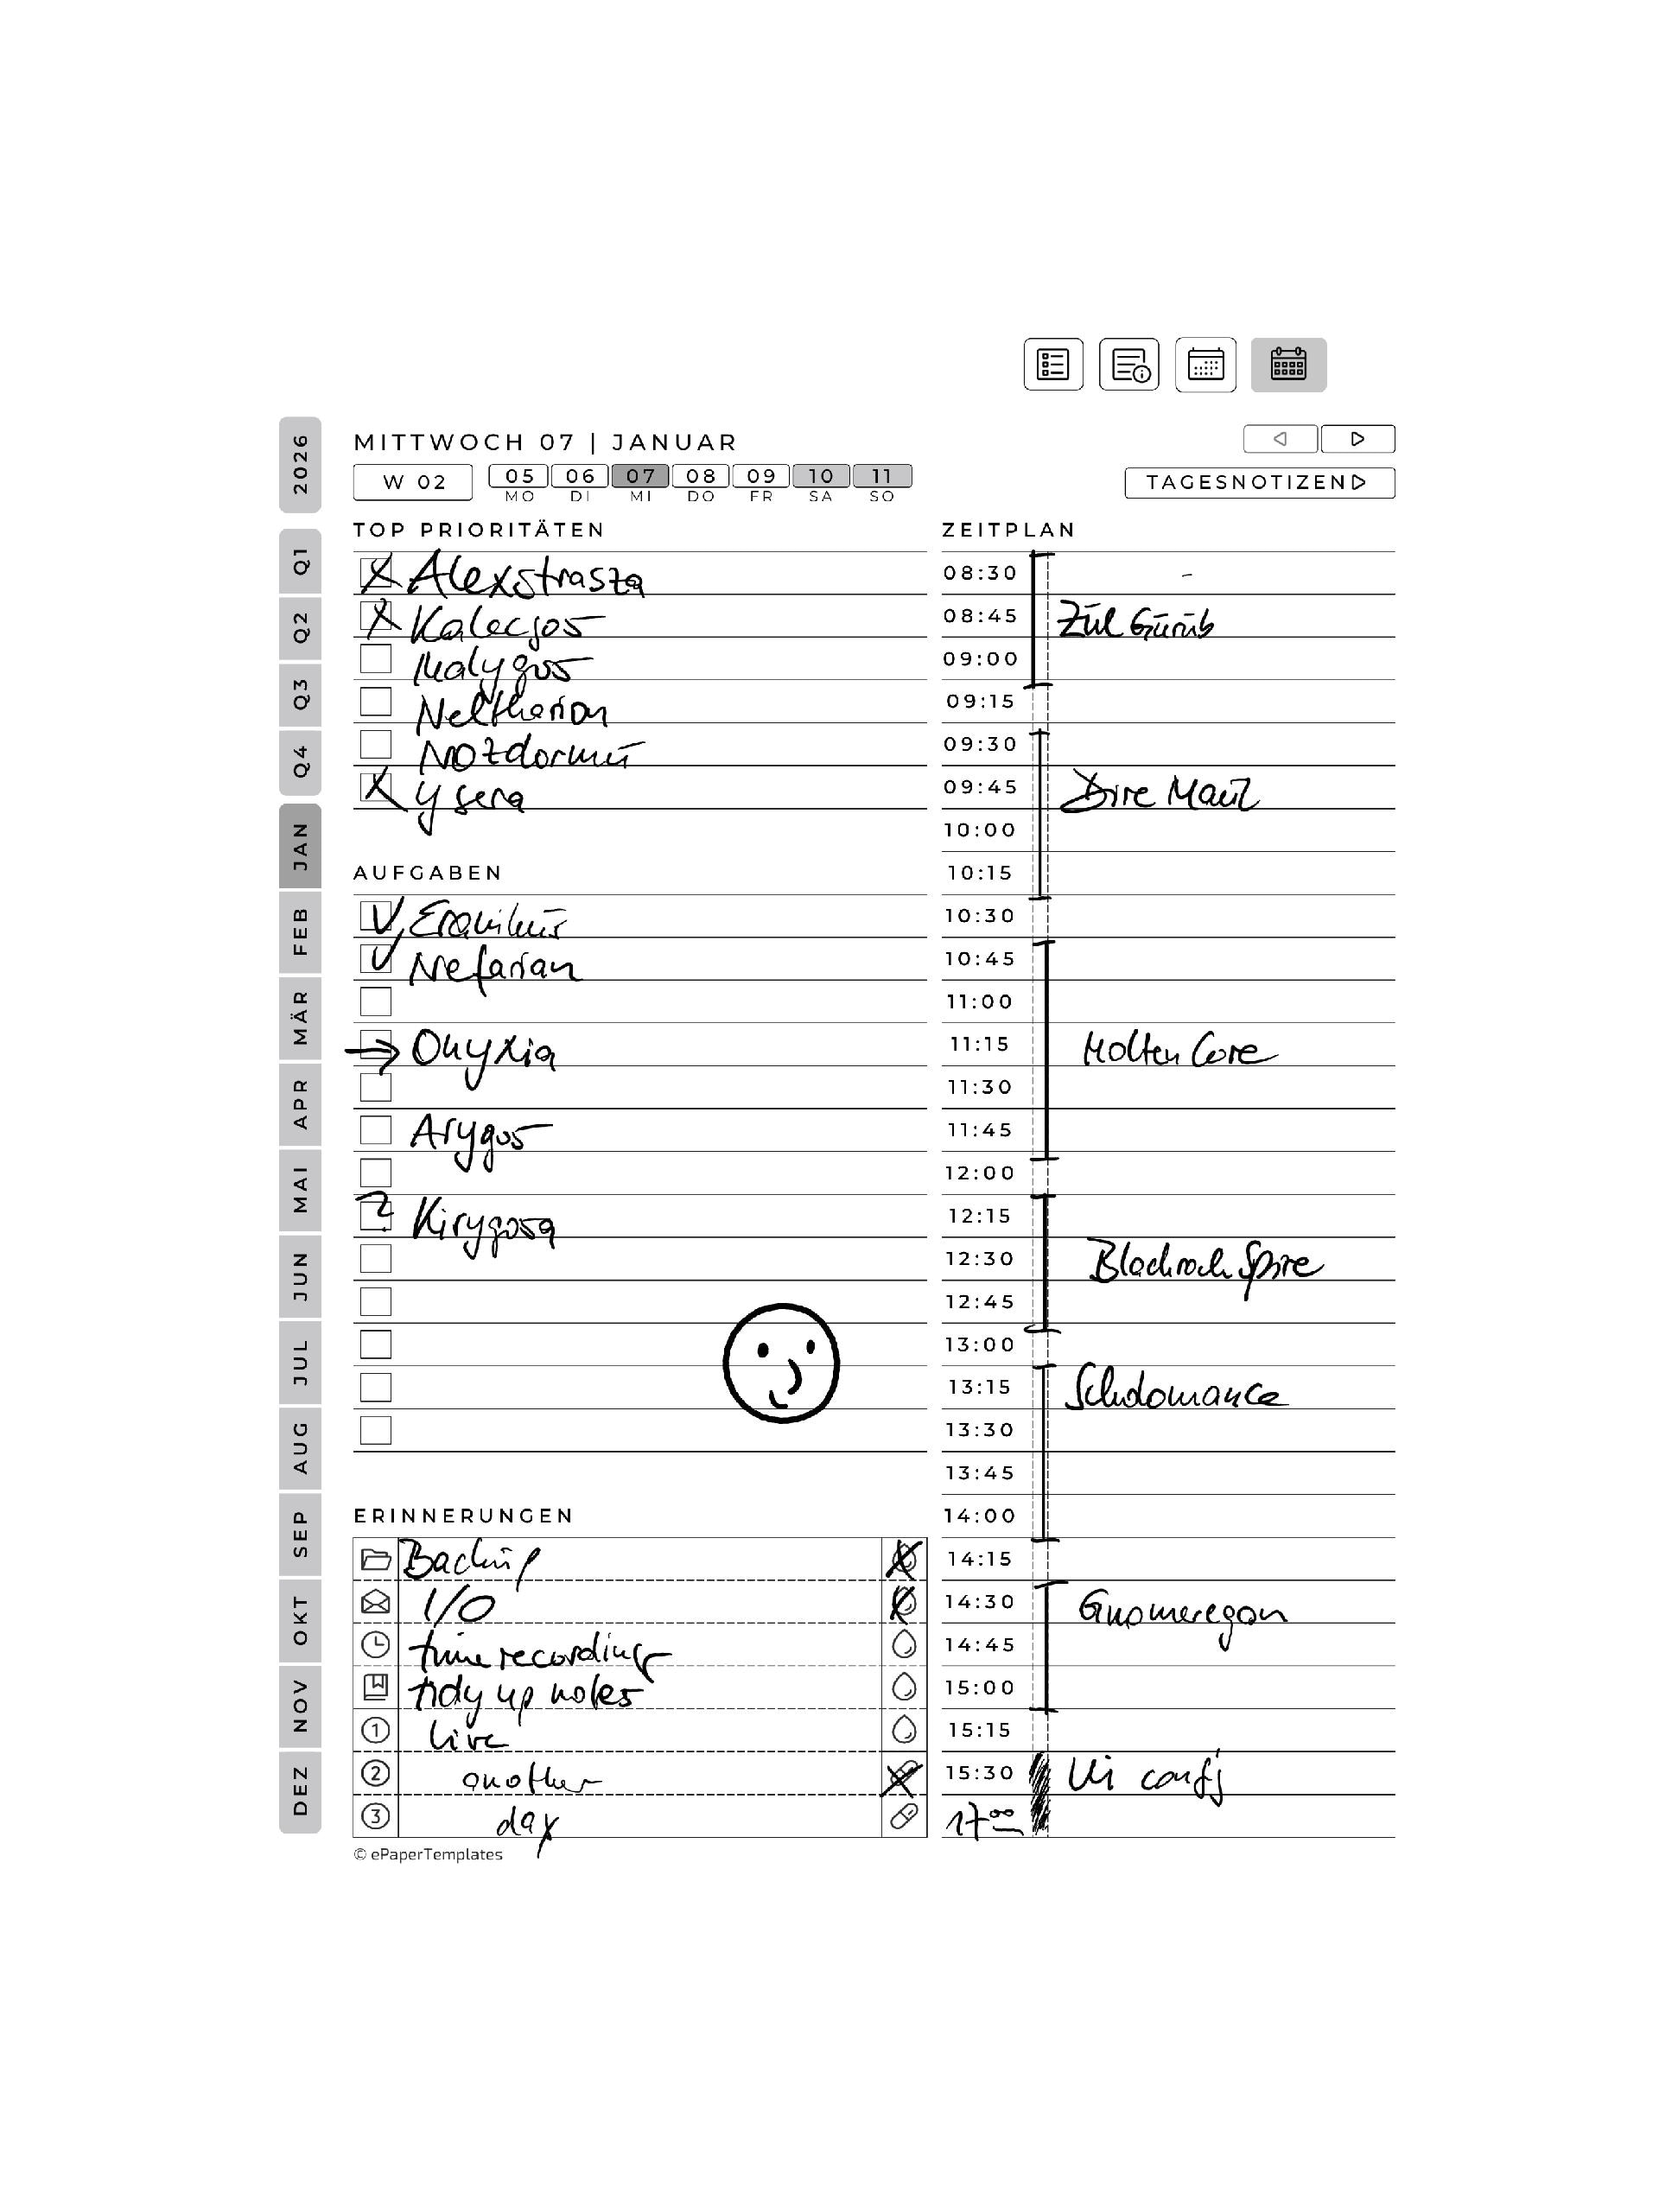 2026
Q1
Q2
Q3
Q4
JAN
FEB
MÄR
APR
MAI
JUN
JUL
AUG
SEP
OKT
NOV
DEZ
MITTWOCH 07 | JANUAR
W 02
05 06 07 08 09 10 11
MO DI MI DO FR SA SO
TAGESNOTIZEN
TOP PRIORITÄTEN
Alexstrasza
Kalecgos
Malygos
Neltharion
Nozdormu
Ysera
AUFGABEN
Eranikus
Nefarian
Onyxia
Arygos
? Kirygosa
ERINNERUNGEN
Backup
I/O
time recording
tidy up notes
1 live
2 another
3 day
© ePaperTemplates
ZEITPLAN
08:30 -
08:45 Zul Gurub
09:00
09:15
09:30
09:45 Dire Maul
10:00
10:15
10:30
10:45
11:00
11:15 Molten Core
11:30
11:45
12:00
12:15
12:30 Blackrock Spire
12:45
13:00
13:15 Scholomance
13:30
13:45
14:00
14:15
14:30 Gnomeregan
14:45
15:00
15:15
15:30 UI
17:00